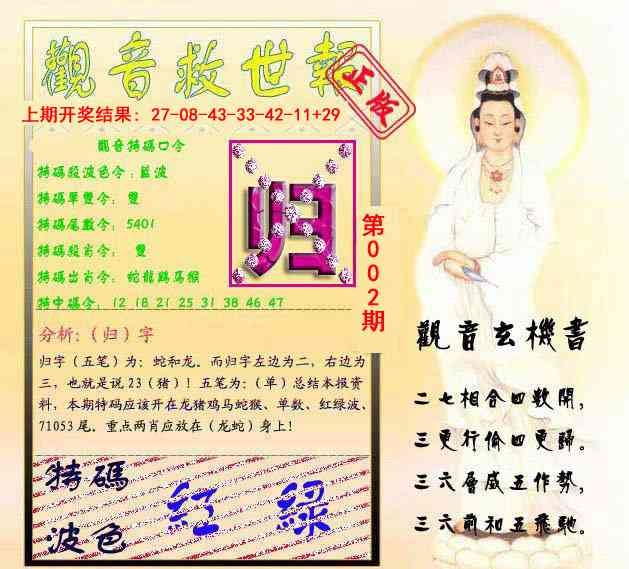 觀音救世報
正版
上期开奖结果：27-08-43-33-42-11+29
觀音特碼口令
特碼段波色令：藍波
特碼單雙令： 雙
特碼尾數令： 5401
特碼段肖令： 雙
特碼出肖令： 蛇龍鷄馬猴
特中碼令： 12 18 21 25 31 38 46 47
归
第002期
分析：（归）字
归字（五笔）为：蛇和龙。而归字左边为二，右边为
三，也就是说 23（猪）！五笔为：（单）总结本报资
料，本期特码应该开在龙猪鸡马蛇猴、单数、红绿波、
71053 尾。重点两肖应放在（龙蛇）身上！
特碼
波色
紅 綠
觀音玄機書
二七相合四數開，
三更行偷四更歸。
三六層威五作勢，
三六前和五飛馳。